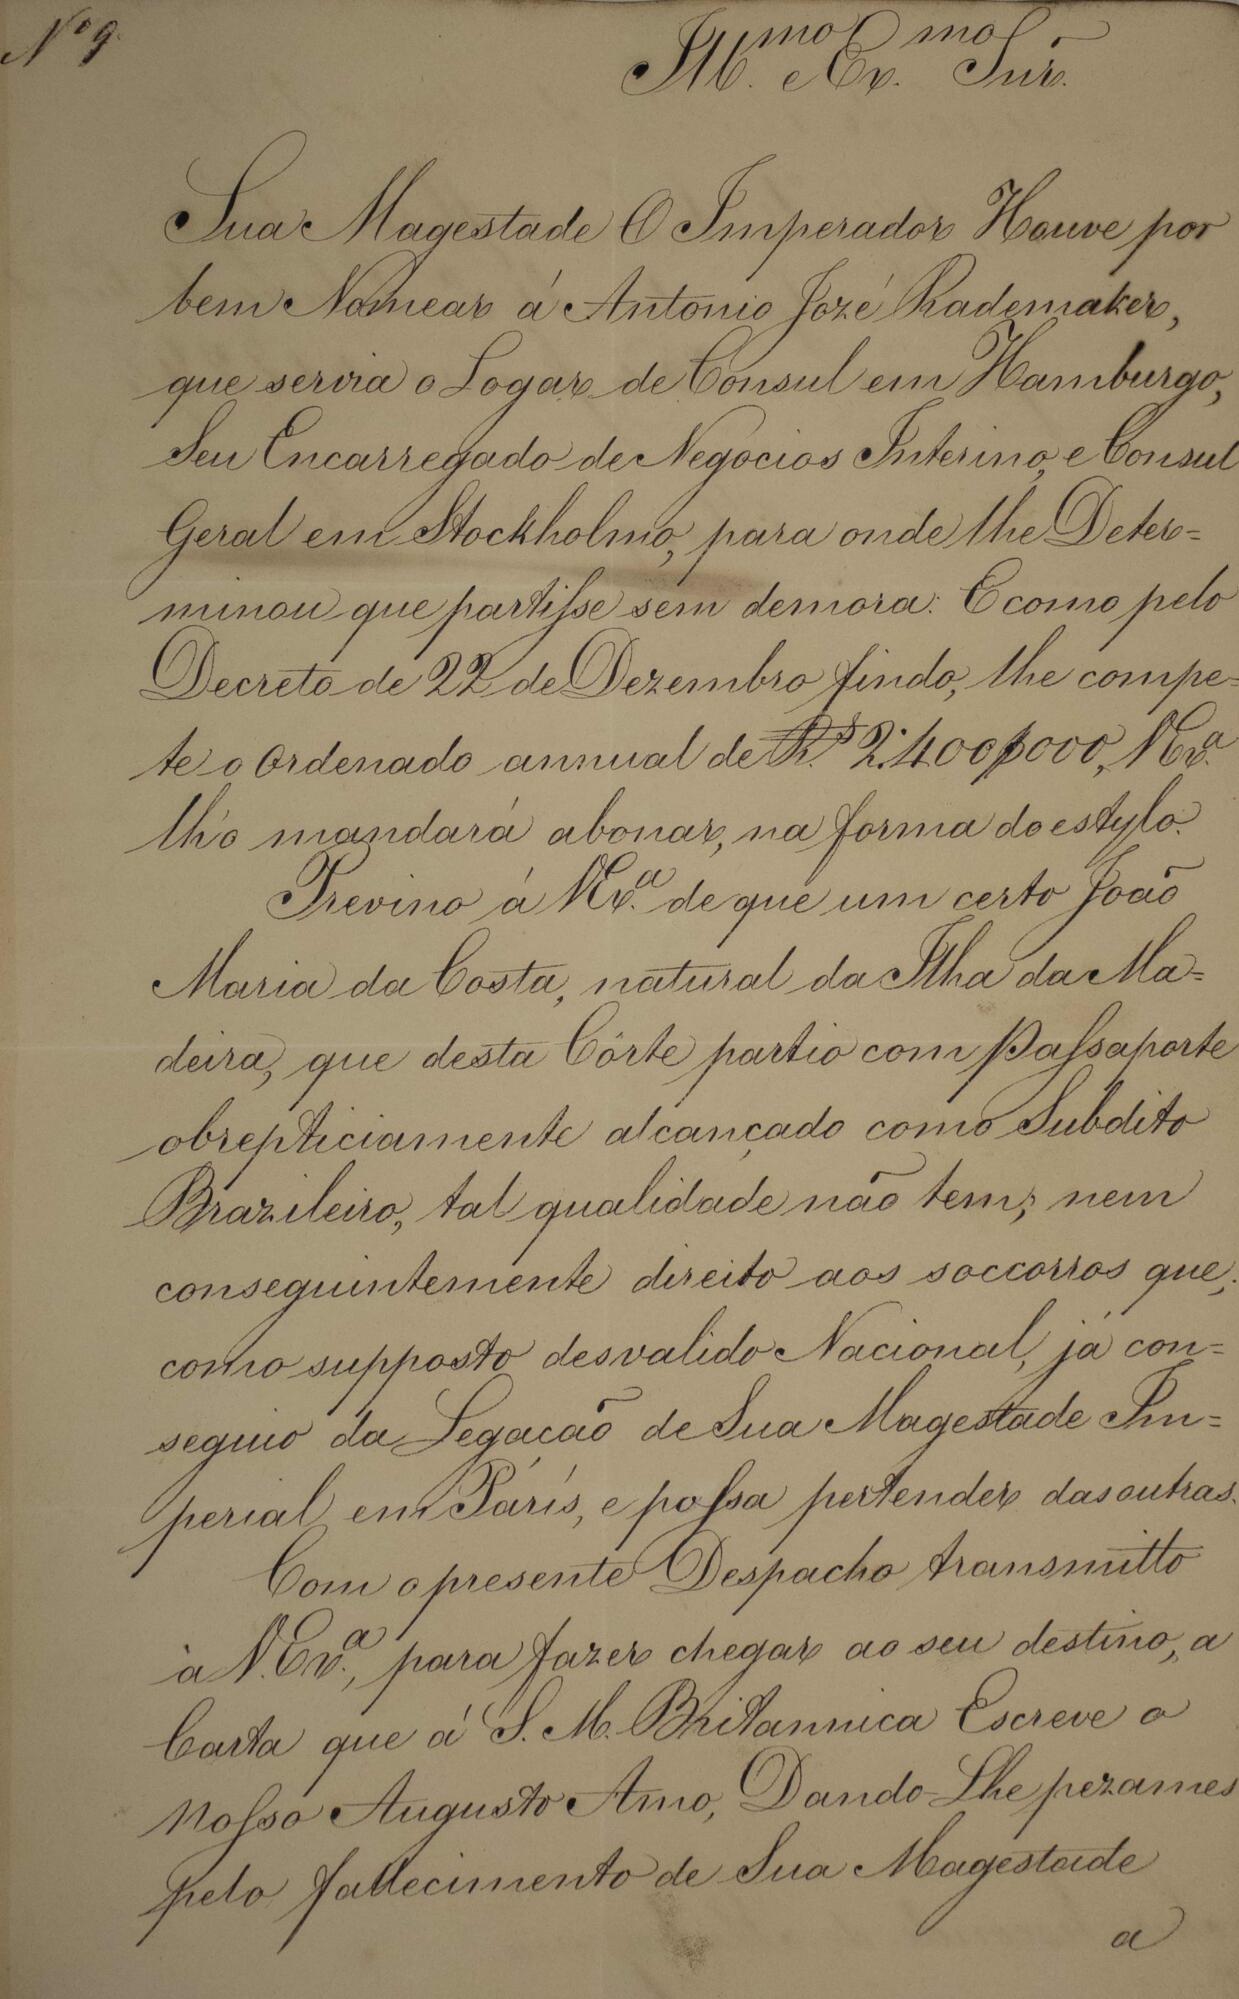 Nº 9.
Ill.mo e Ex.mo Snr.
Sua Magestade O Imperador Houve por
bem Nomear á Antonio Jozé Rademaker,
que servia o Logar de Consul em Hamburgo,
Seu Encarregado de Negocios Interino, e Consul
Geral em Stockholmo, para onde lhe Deter=
minou que partisse sem demora: E como pelo
Decreto de 22 de Dezembro findo, lhe compe=
te o Ordenado annual de Rs 2:400$000, V Ex.a
lh'o mandará abonar, na forma do estylo.
Previno á V Ex.a de que um certo João
Maria da Costa, natural da Ilha da Ma=
deira, que desta Côrte partio com Passaporte
obrepticiamente alcançado como Subdito
Brazileiro, tal qualidade não tem; nem
conseguintemente direito aos soccorros que,
como supposto desvalido Nacional, já con=
seguio da Legacão de Sua Magestade Im=
perial em Párís, e possa pertender das outras.
Com o presente Despacho transmitto
à V. Ex.a, para fazer chegar ao seu destino, a
Carta que á S. M. Britannica Escreve o
Nosso Augusto Amo, Dando-Lhe pezames
pelo fallecimento de Sua Magestade
a